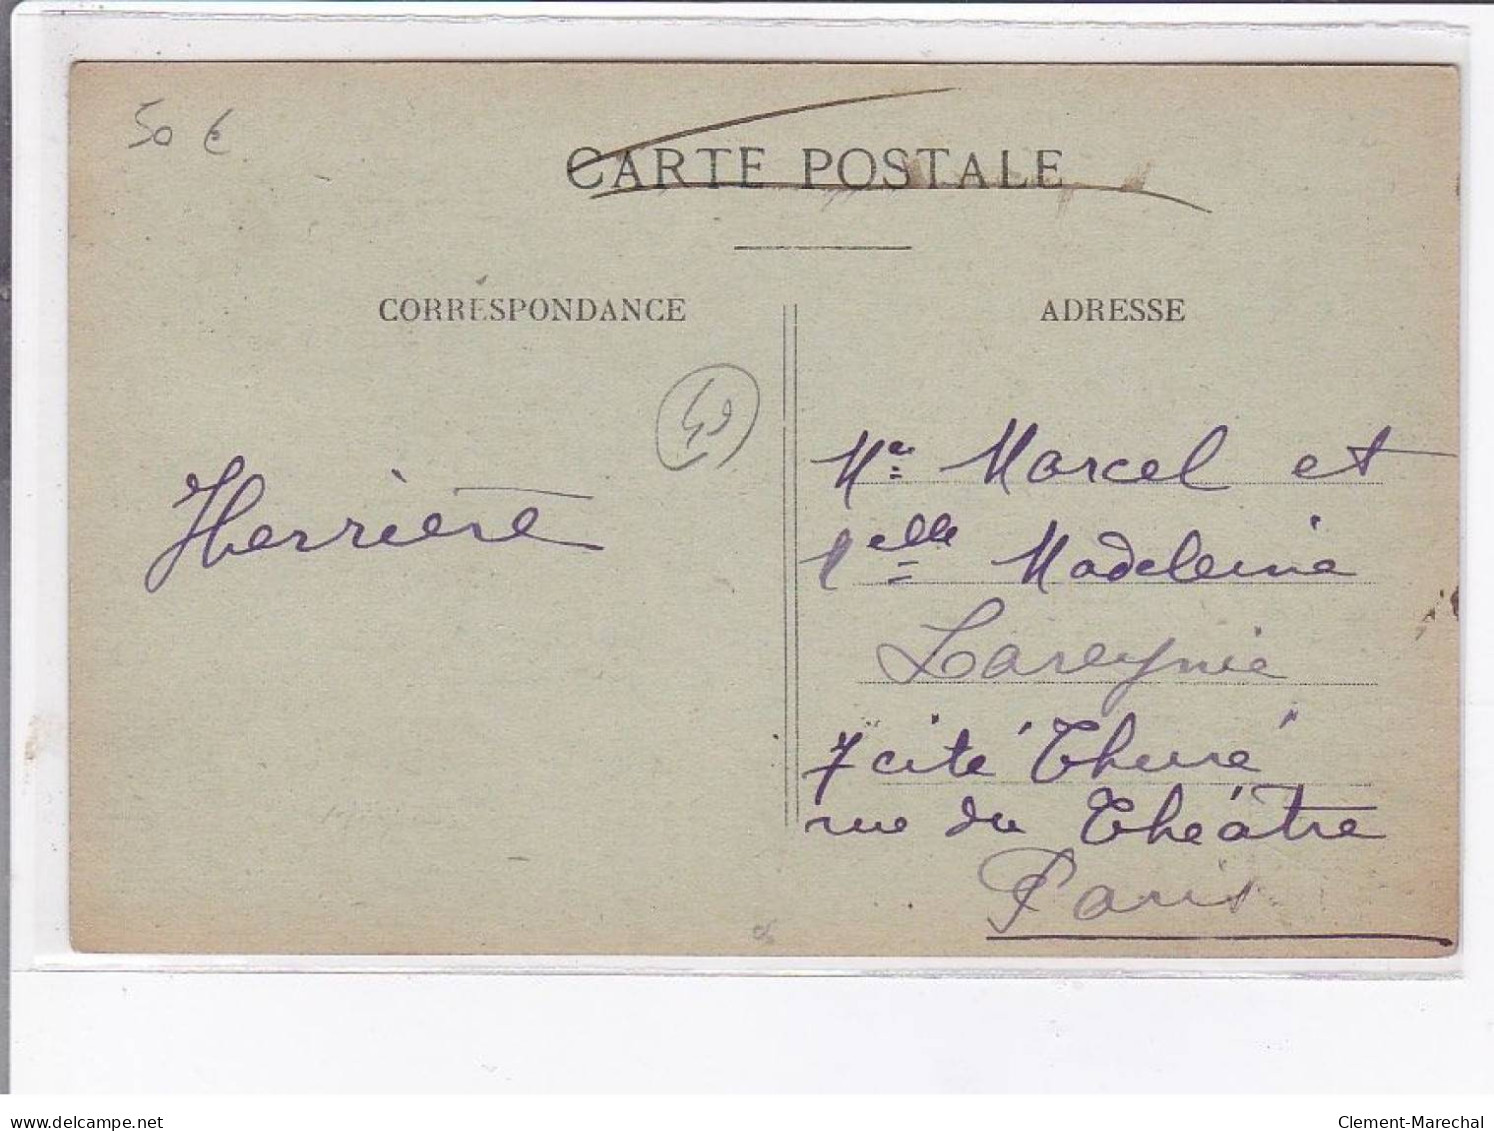 50 €
CARTE POSTALE
CORRESPONDANCE
ADRESSE
49
Herrière
Mr Marcel et
Melle Madeleine
Lareynie
7 cité Thuré
rue du Théâtre
Paris
delcampe.net
Clement-Marechal